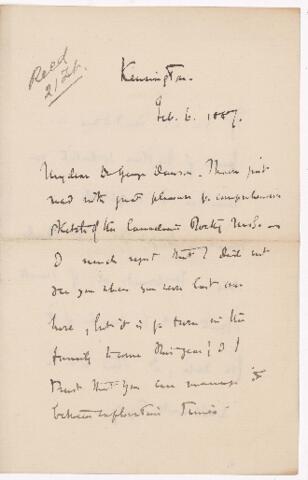 Recd
21 Feb.
Kensington.
Feb. 6. 1887.
My dear Dr George Dawson. I have just
read with great pleasure yr comprehensive
sketch of the Canadian Rocky Mts. &
I much regret that I did not
see you when you were last over
here, but it is yr turn in the
family to come this year! & I
trust that you can manage it
between exploration times.